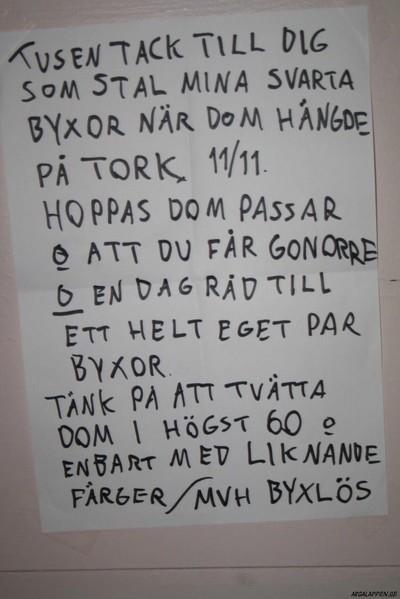 TUSEN TACK TILL DIG
SOM STAL MINA SVARTA
BYXOR NÄR DOM HÄNGDE
PÅ TORK, 11/11.
HOPPAS DOM PASSAR
O ATT DU FÅR GONORRE
O EN DAG RÅD TILL
ETT HELT EGET PAR
BYXOR.
TÄNK PÅ ATT TVÄTTA
DOM I HÖGST 60 O
ENBART MED LIKNANDE
FÄRGER/MVH BYXLÖS
ARGALAPPEN.SE